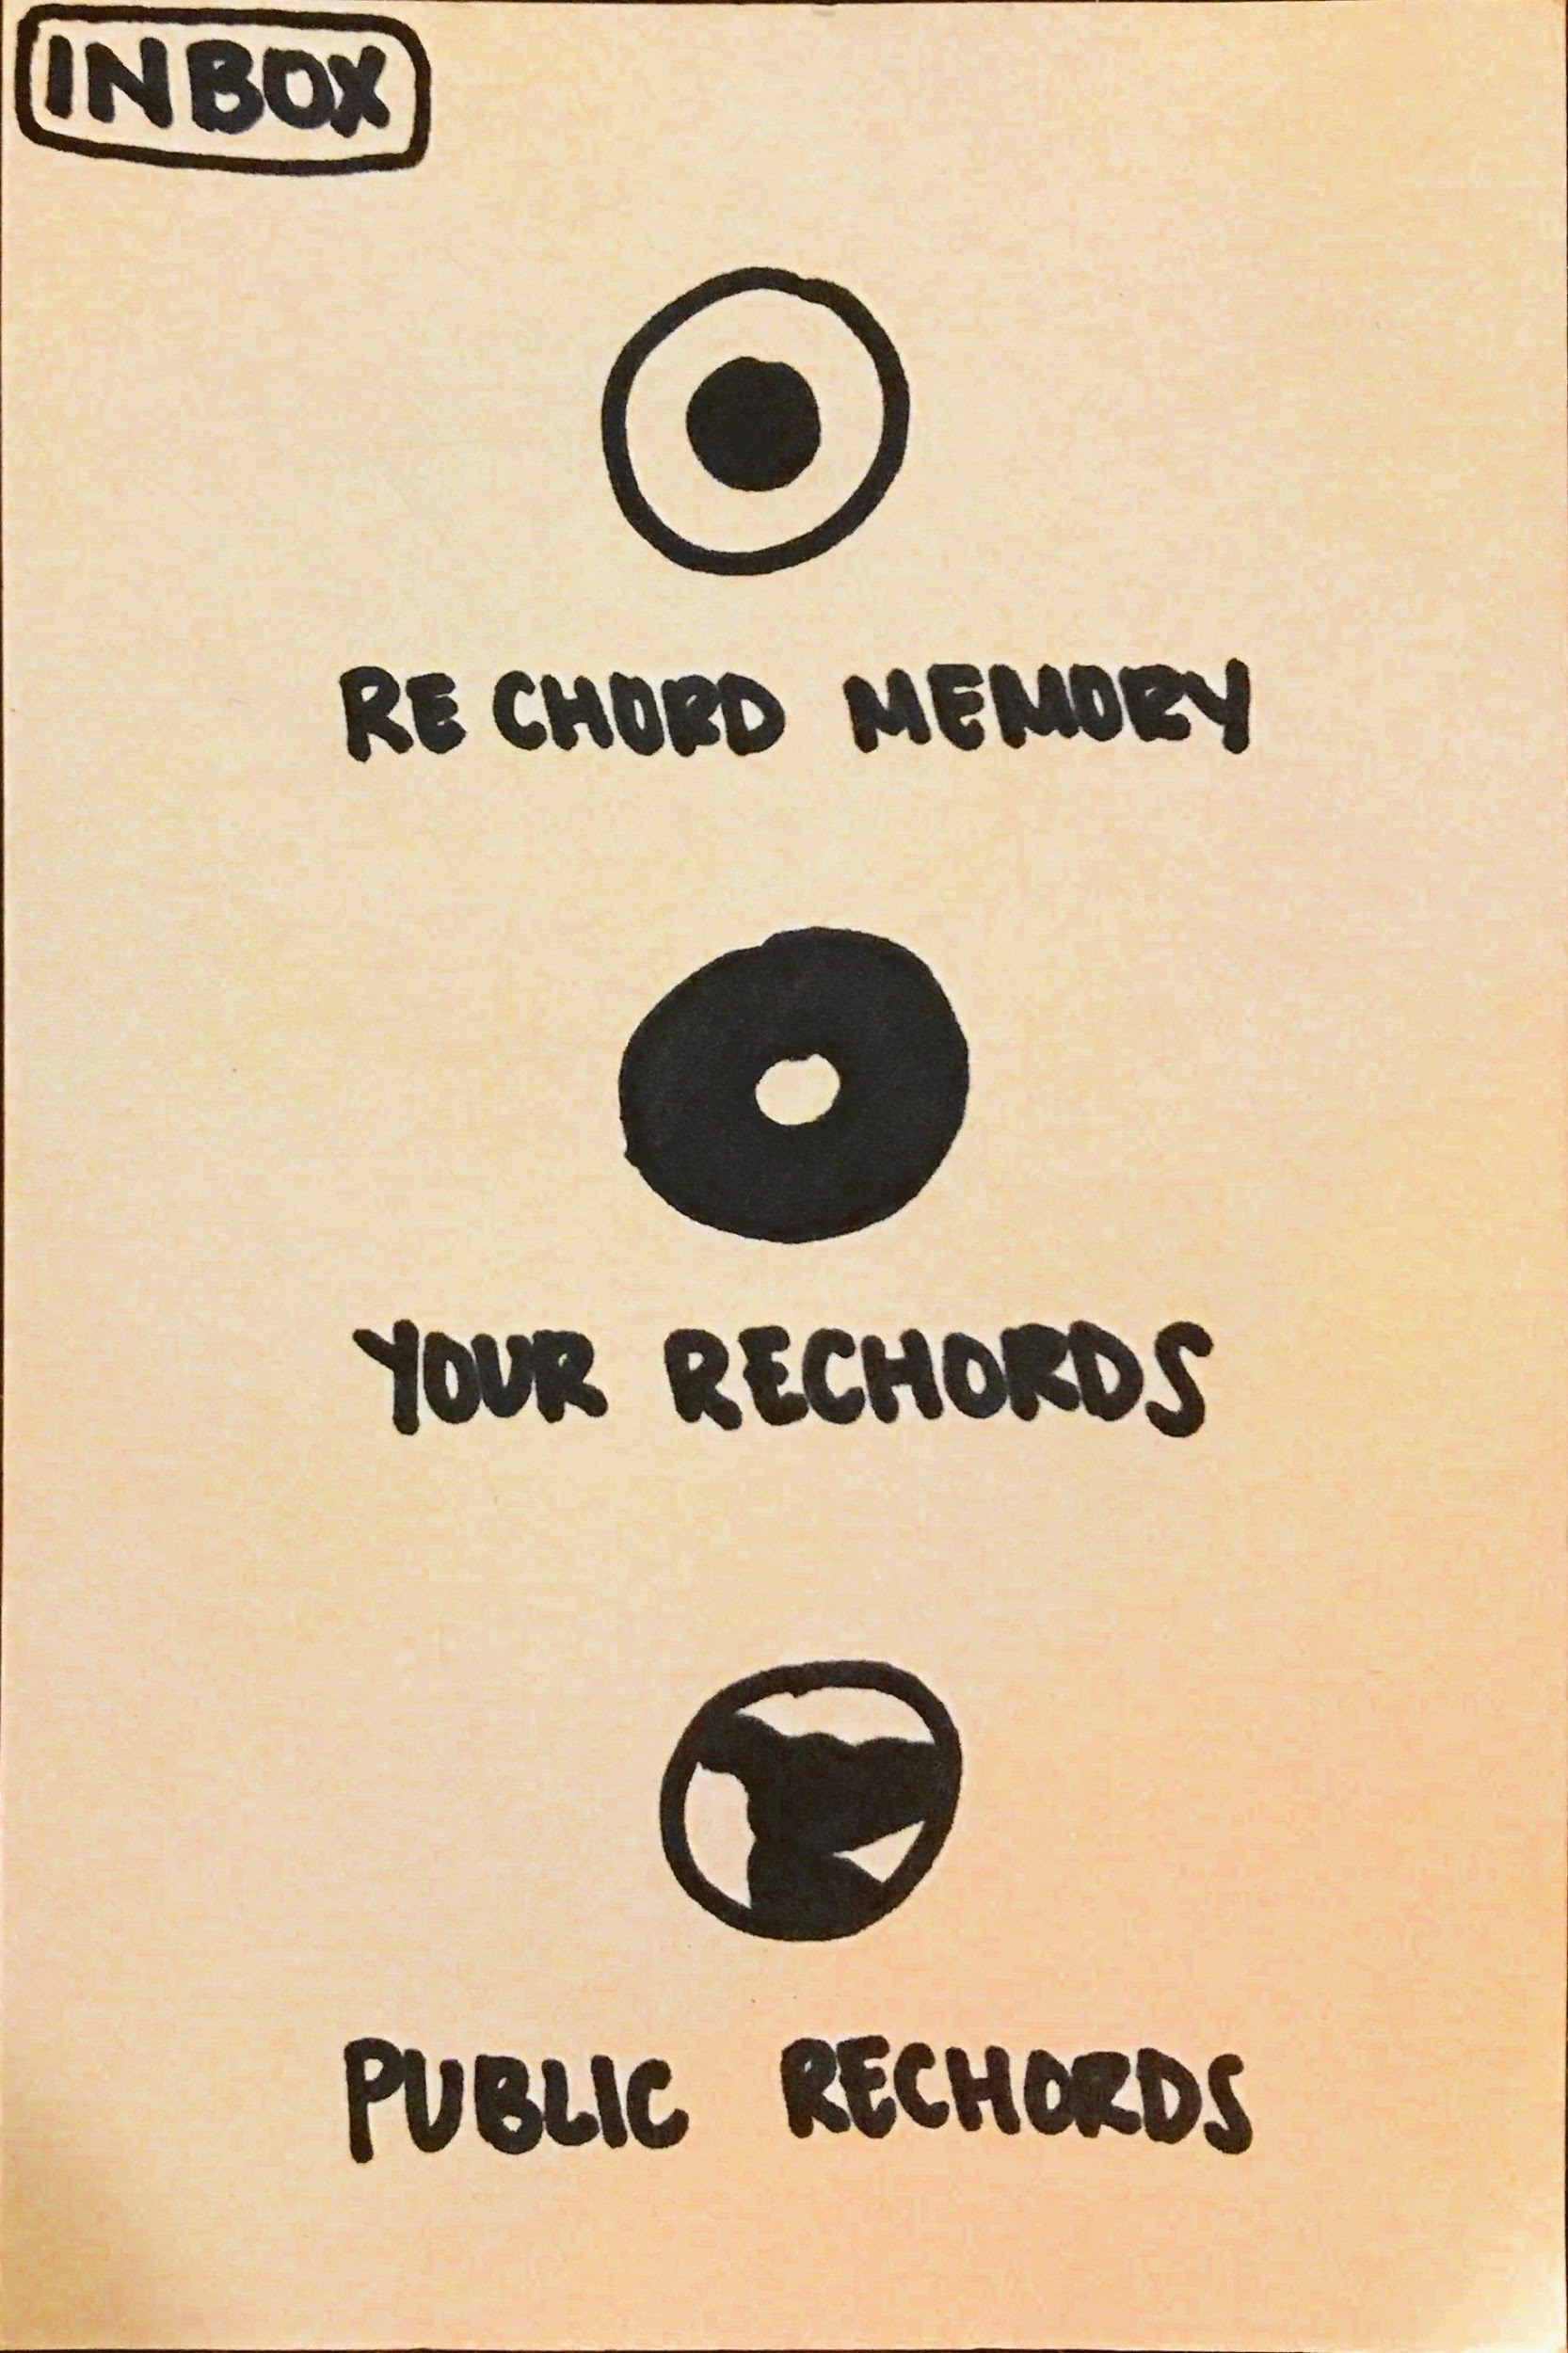 INBOX
RE CHORD MEMORY
YOUR RECHORDS
PUBLIC RECHORDS